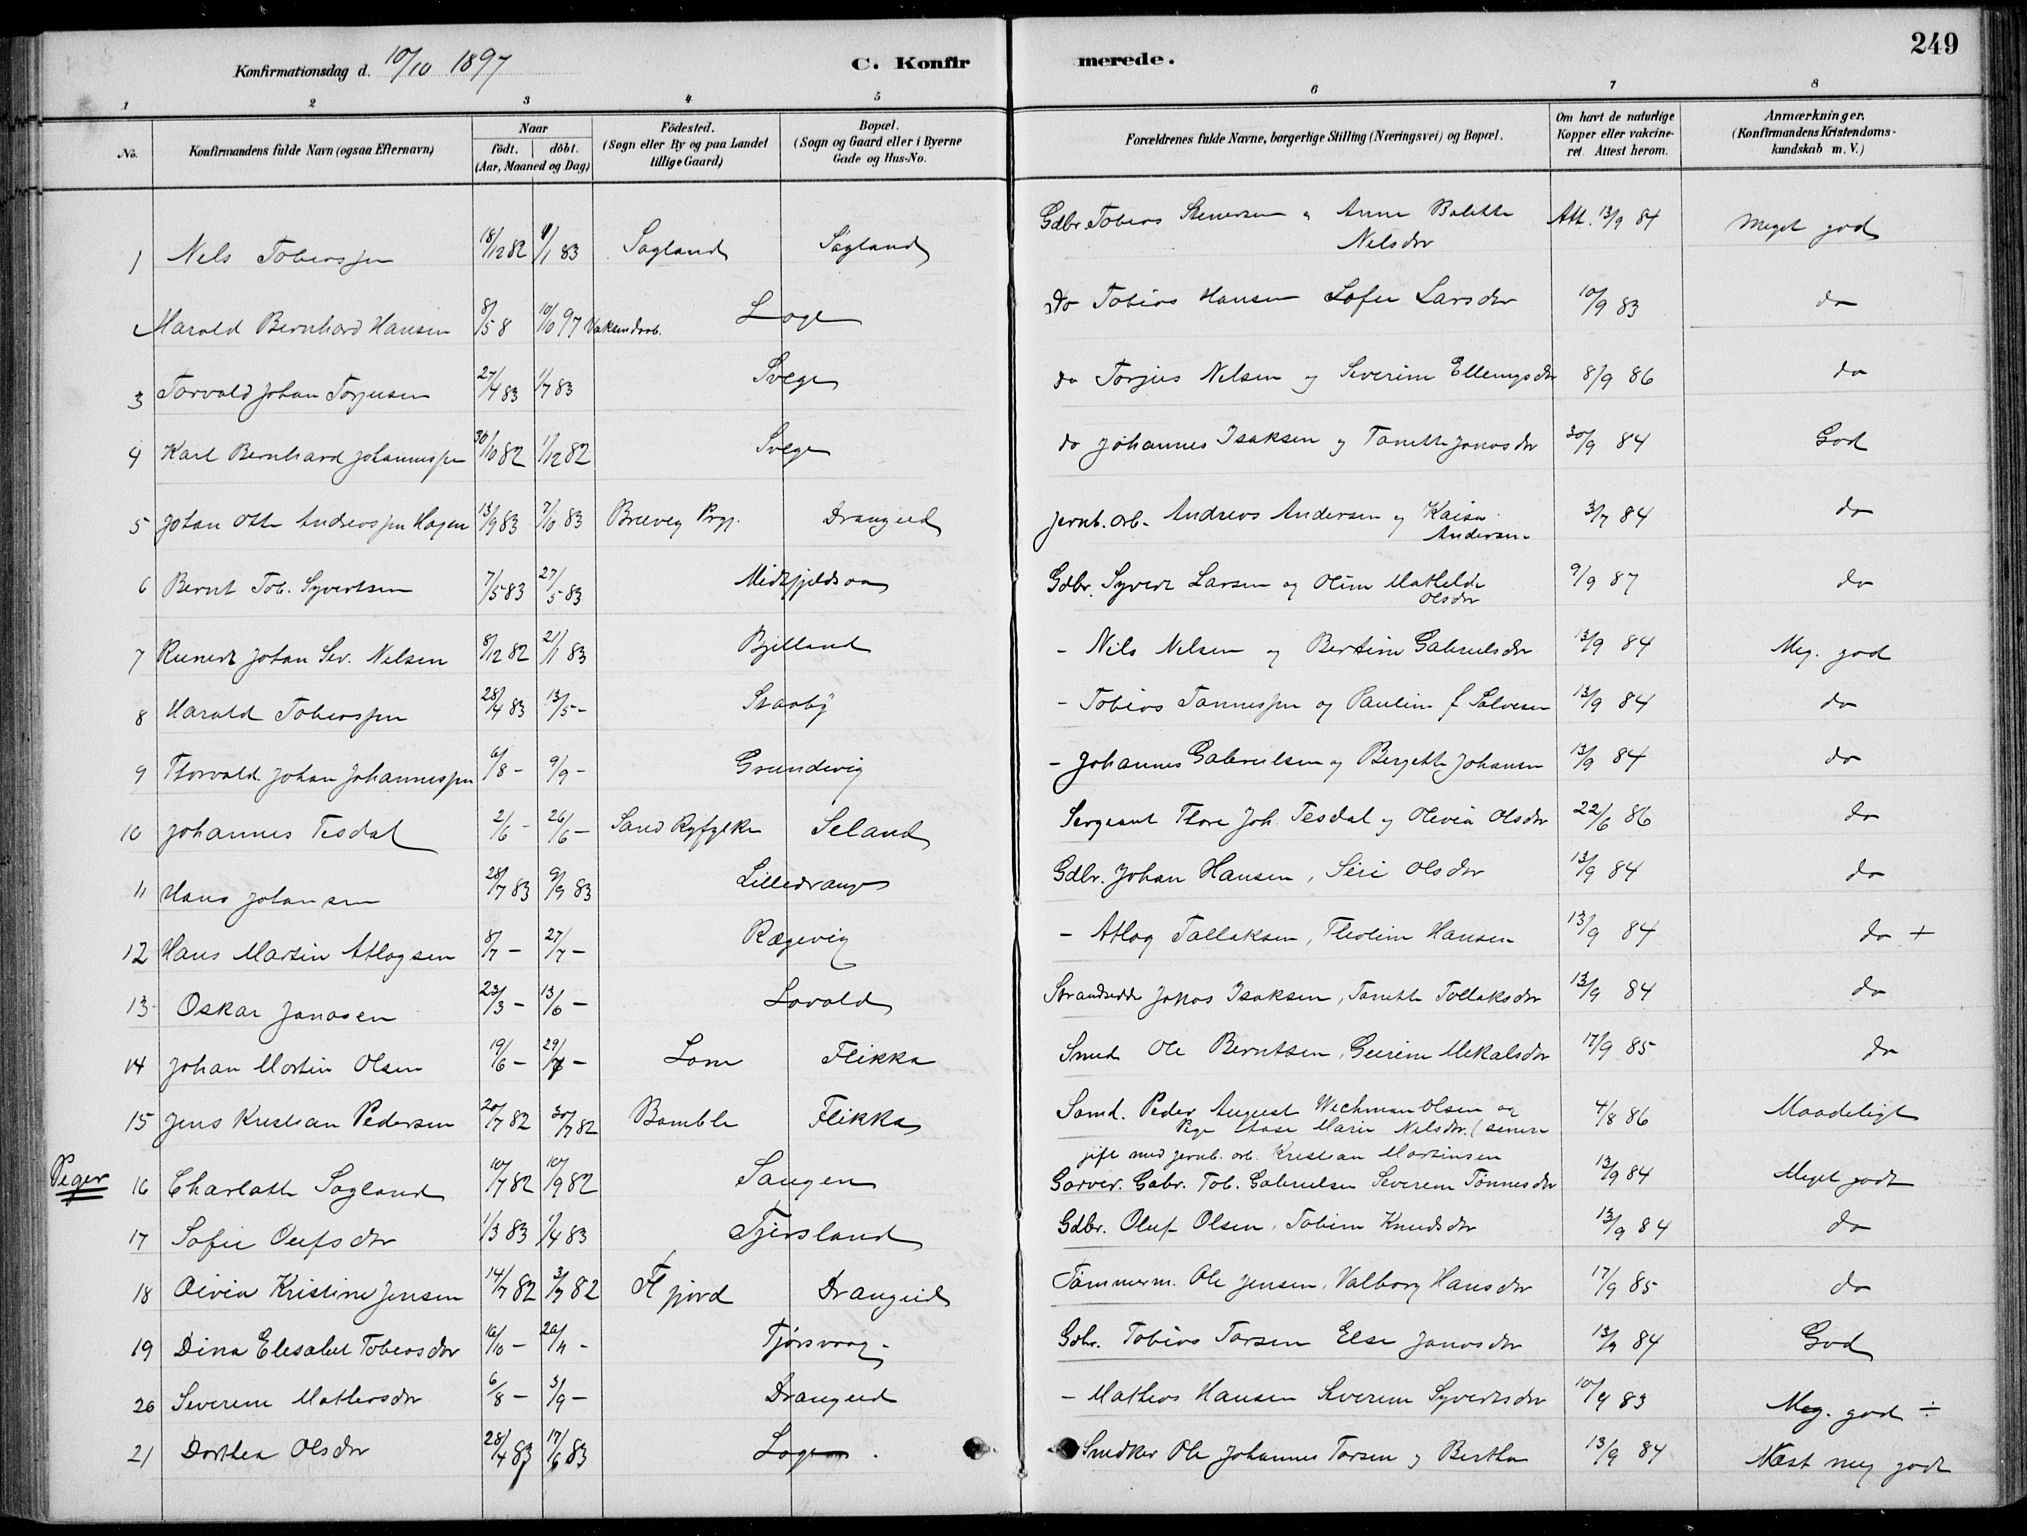 Konfirmationsdag d. 10/10 1897
C. Konfirmerede.
249
1 2 3 4 5 6 7 8
No.
Konfirmandens fulde Navn (ogsaa Efternavn)
Naar
født. døbt.
(Aar, Maaned og Dag)
Fødested.
(Sogn eller By og paa Landet
tillige Gaard)
Bopæl.
(Sogn og Gaard eller i Byerne
Gade og Hus-No.
Forældrenes fulde Navne, borgerlige Stilling (Næringsvei) og Bopæl.
Om havt de naturlige
Kopper eller vakcine-
ret. Attest herom.
Anmærkninger.
(Konfirmandens Kristendoms-
kundskab m. V.)
1 Nels Tobiassen 18/12 82 1/1 83 Sagland Sagland Gdbr. Tobias Stenersen og Anne Bolette Nelsdtr Att. 13/9 84 Meget god
Harald Bernhard Hansen 8/5 8 10/10 97 Loge do Tobias Hansen Sofie Larsdtr 10/9 83 do
3 Torvald Johan Torjusen 27/4 83 1/7 83 Svege do Torjus Nelsen og Severine Ellingsdtr 8/9 86 do
4 Karl Bernhard Johannessen 30/10 82 1/12 82 Svege do Johannes Isaksen og Tonette Jonasdtr 30/9 84 God
5 Johan Otto Andreassen Hagen 13/9 83 7/10 83 Brevig Prgj. Drangeid Jernb. arb. Andreas Andersen og Kaisa Andersen 3/7 84 do
6 Bernt Tob. Syvertsen 7/5 83 27/5 83 Midtfjeldsaa Gdbr. Syvert Larsen og Oline Mathilde Olsdtr 9/9 87 do
7 Reinert Johan Sev. Nelsen 8/12 82 21/1 83 Bjelland - Nils Nelsen og Bertine Gabrielsdtr 13/9 84 Meg. god
8 Harald Tobiassen 28/4 83 13/5 - Staaby - Tobias Tønnessen og Pauline f. Salvesen 13/9 84 do
9 Thorvald Johan Johannessen 6/8 - 9/9 - Grundevig - Johannes Gabrielsen og Bergette Johansen 13/9 84 do
10 Johannes Tesdal 2/6 - 26/6 - Sand Ryfylke Seland Sergeant Thore Joh. Tesdal og Olevia Olsdtr 22/6 86 do
11 Hans Johansen 28/7 83 9/9 83 Lilledrange Gdbr. Johan Hansen, Siri Olsdtr 13/9 84 do
12 Hans Martin Atlagsen 8/7 - 27/7 - Rægevig - Atlag Tallaksen, Theoline Hansen 13/9 84 do +
13 Oskar Jonasen 23/3 - 13/6 - Lovald Strandsidder Jonas Isaksen, Tonette Tollaksdtr 13/9 84 do
14 Johan Martin Olsen 19/6 - 29/7 - Lom Flikka Smed Ole Berntsen, Geirine Mikalsdtr 17/9 85 do
15 Jens Kristian Pedersen 20/7 82 30/7 82 Bamble Flikka Sømd. Peder August Wechman Olsen og Pige Aase Marie Nilsdtr. (senere
gift med jernb. arb. Kristian Martinsen 4/8 86 Maadeligt
Piger
16 Charlotte Sagland 10/7 82 10/9 82 Saugen Garver. Gabr. Tob. Gabrielsen Severine Tønnesdtr 13/9 84 Meget godt
17 Sofie Olufsdtr 1/3 83 1/4 83 Tjersland Gdbr. Oluf Olsen, Tobine Knudsdtr 13/9 84 do
18 Olivia Kristine Jensen 14/7 82 3/9 82 Fl fjord Drangeid Tømmerm. Ole Jensen, Valborg Hansdtr 17/9 85 do
19 Dina Elisabet Tobiasdtr 16/10 - 26/11 - Tjørsvaag Gdbr. Tobias Torsen Else Jonasdtr 13/9 84 God
20 Severine Mathiasdtr 6/8 - 3/9 - Drangeid - Mathias Hansen Severine Syvertsdtr 10/9 83 Meg. god ÷
21 Dorthea Olsdtr 28/4 83 17/6 83 Loge Snedker Ole Johannes Torsen og Bertha 13/9 84 Næst meg godt